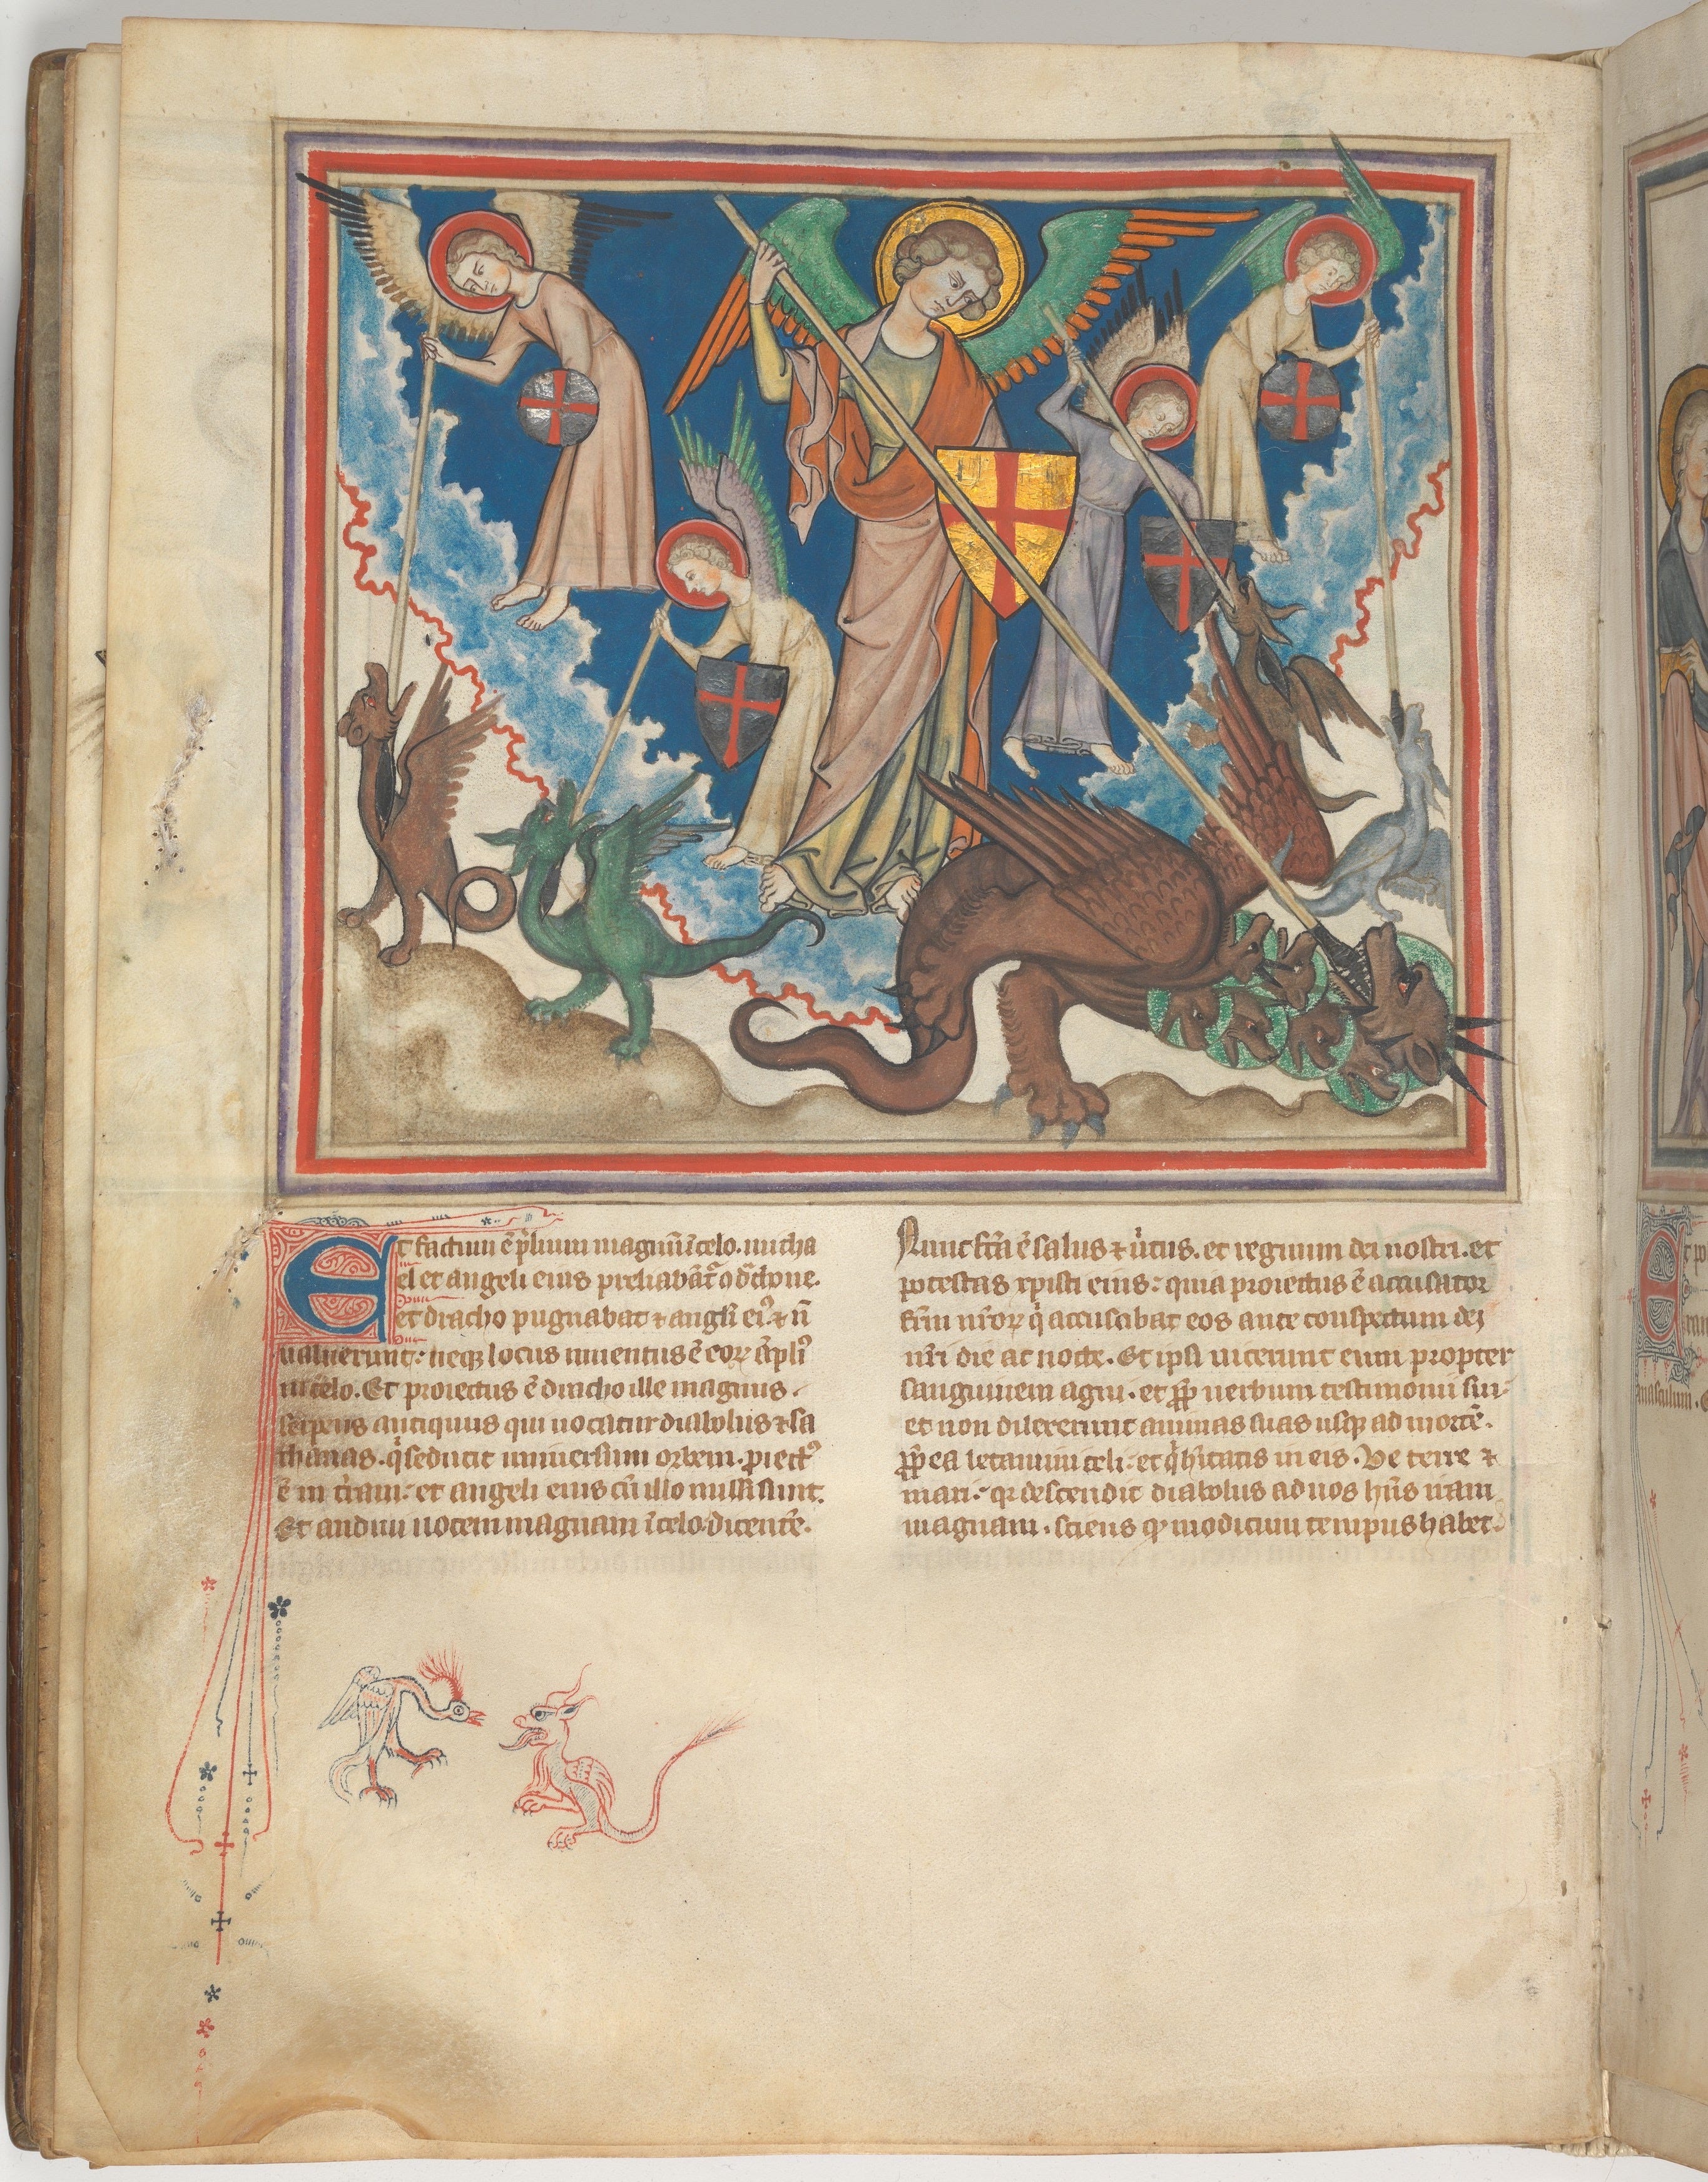 Et factum ē p̄lium magnū ī celo. micha
el et angeli eius preliabāt̄ᷣ cū dracone.
et dracho pugnabat ⁊ angli ei⁹. ⁊ n̄
ualuerunt: neqꝫ locus inuentus ē eoꝝ āpli⁹
in celo. Et proiectus ē dracho ille magnus.
serpens antiquus qui uocatur diabolus ⁊ sa
thanas. q̇ seducit uniuersum orbem. ꝓiect⁹
ē in t̄ram: et angeli eius cū illo missi sunt.
Et audiui uocem magnam ī celo dicentē.
Nunc fc̄a ē salus ⁊ u̇tus. et regnum dei nostri. et
potestas xpisti eius: quia proiectus ē accusator
fr̄m nr̄oꝝ q̇ accusabat eos ante conspectum dei
nr̄i die ac nocte. Et ipsi uicerunt eum propter
sanguinem agni. et ꝓp̄ uerbum testimonii sui:
et non dilexerunt animas suas usqꝫ ad mortē.
ꝓp̄ea letamini celi: et q̇ hītatis in eis. Ve terre ⁊
mari: qꝛ descendit diabolus ad uos hn̄s iram
magnam. sciens ꝙ modicum tempus habet.